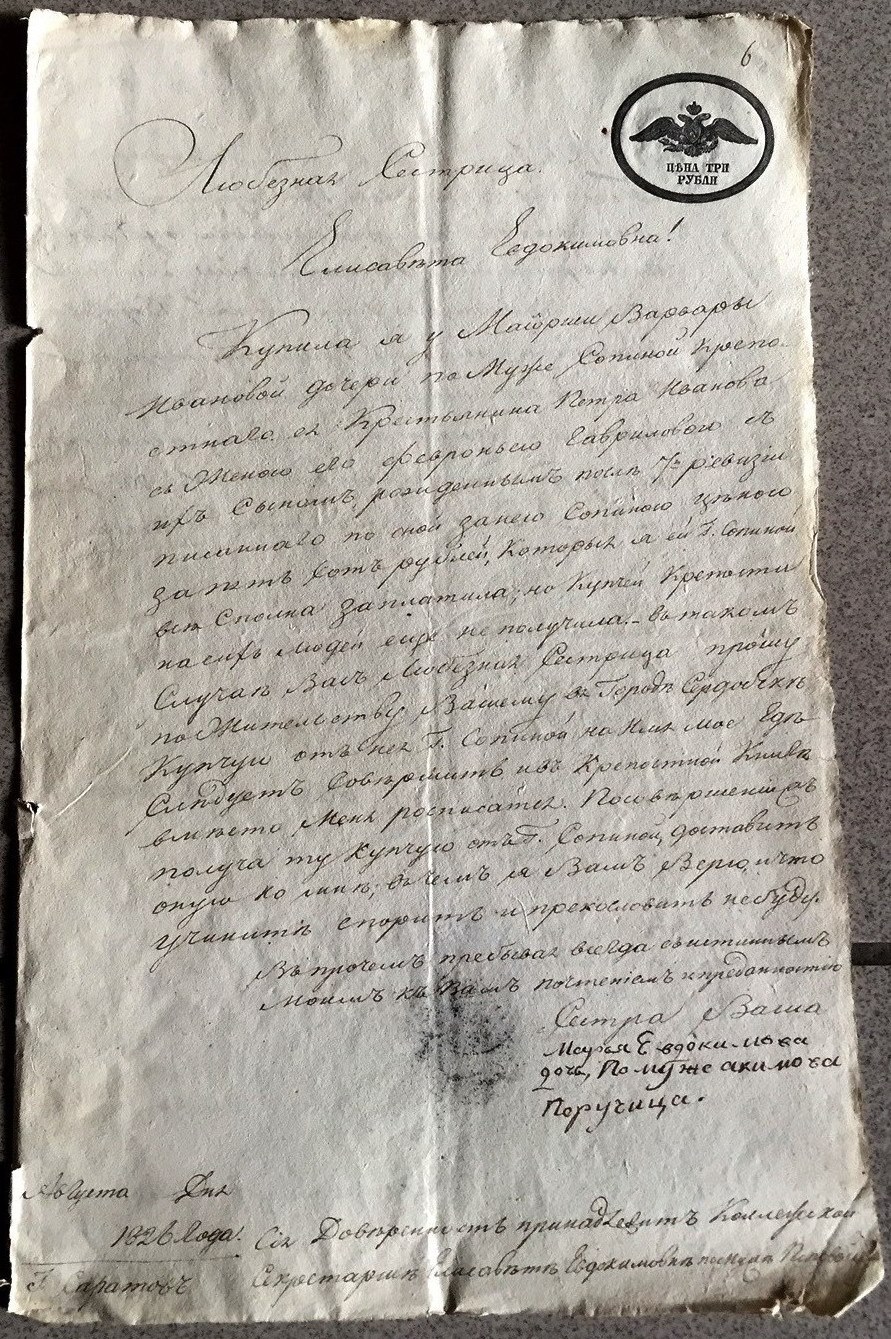 6
ЦѢНА ТРИ
РУБЛИ
Любезная Сестрица.
Елисавѣта Евдокимовна!
Купила я у Маіорши Варвары
Ивановой дочери по Мужѣ Сопиной крепо-
стнаго ея Крестьянина Петра Иванова
съ Женою его Февроньею Гавриловою съ
ихъ Сыномъ рожденнымъ послѣ 7й ревизіи
писаннаго по оной занею Сопиною цѣною
за пять сотъ рублей, Которыя я ей Г. Сопиной
всѣ Сполна заплатила; но Купчей Крепости
на сихъ людей еще не получила. – въ такомъ
Случаѣ Васъ Любезная Сестрица прошу
по Жительству Вашему въ Городѣ Сердобскѣ
Купчую отъ нея Г. Сопиной на Имя мое Гдѣ
Слѣдуетъ Совѣршить и въ Крепостной Книгѣ
вмѣсто Меня росписатся. По совѣршеніи жъ
получа ту купчую отъ Г. Сопиной, доставить
оную ко мнѣ; въ чемъ я Вамъ Верю, и что
учините спорить и прекословить небуду.
Въ прочемъ пребывая всегда съ истиннымъ
Моимъ къ Вамъ почтеніемъ и преданностію
Сестра Ваша
Марья Евдокимова
дочь, По мужe акимова
Поручица.
Августа Дня
1826 Года.
Г. Саратовъ
Сія Довѣренность принадлежитъ Коллежской
Секретаршѣ Елисавѣтѣ Евдокимовнѣ